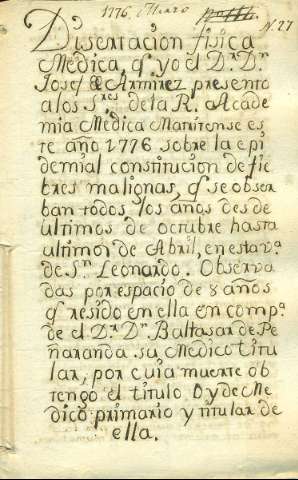 1776 Marzo
N. 27
Disertacion fisica
Medica, q̃ yo el Dr. Dn.
Josef Arminez presento
a los Sres. de la R. Acade
mia Medica Matritense es
te año 1776 sobre la epi
demial constitucion de fie
bres malignas, q̃ se obser
ban todos los años desde
ultimos de octubre hasta
ultimos de Abril, en esta va.
de Sn. Leonardo. Observa
das por espacio de 8 años
q̃ resido en ella en compa.
de el Dr. Dn. Baltasar de Pe
ñaranda su Medico titu
lar, por cuia muerte ob
tengo el titulo Oy de Me
dico primario y titular de
ella.